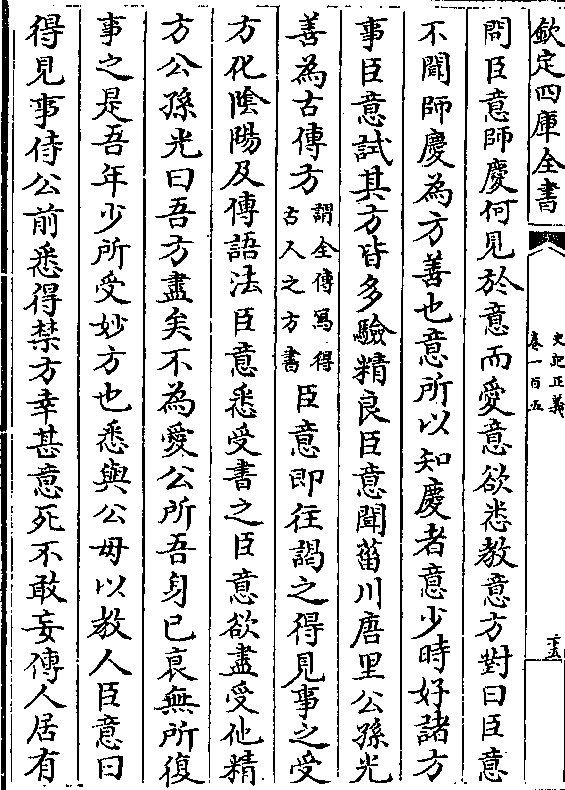 欽定四庫全書
史記正義
卷一百五
問臣意師慶何見於意而愛意欲悉教意方對曰臣意
不聞師慶為方善也意所以知慶者意少時好諸方
事臣意試其方皆多驗精良臣意聞菑川唐里公孫光
善為古傳方
謂全傳寫得
古人之方書
臣意即往謁之得見事之受
方化陰陽及傳語法臣意悉受書之臣意欲盡受他精
方公孫光曰吾方盡矣不為愛公所吾身已衰無所復
事之是吾年少所受妙方也悉與公毋以教人臣意曰
得見事侍公前悉得禁方幸甚意死不敢妄傳人居有